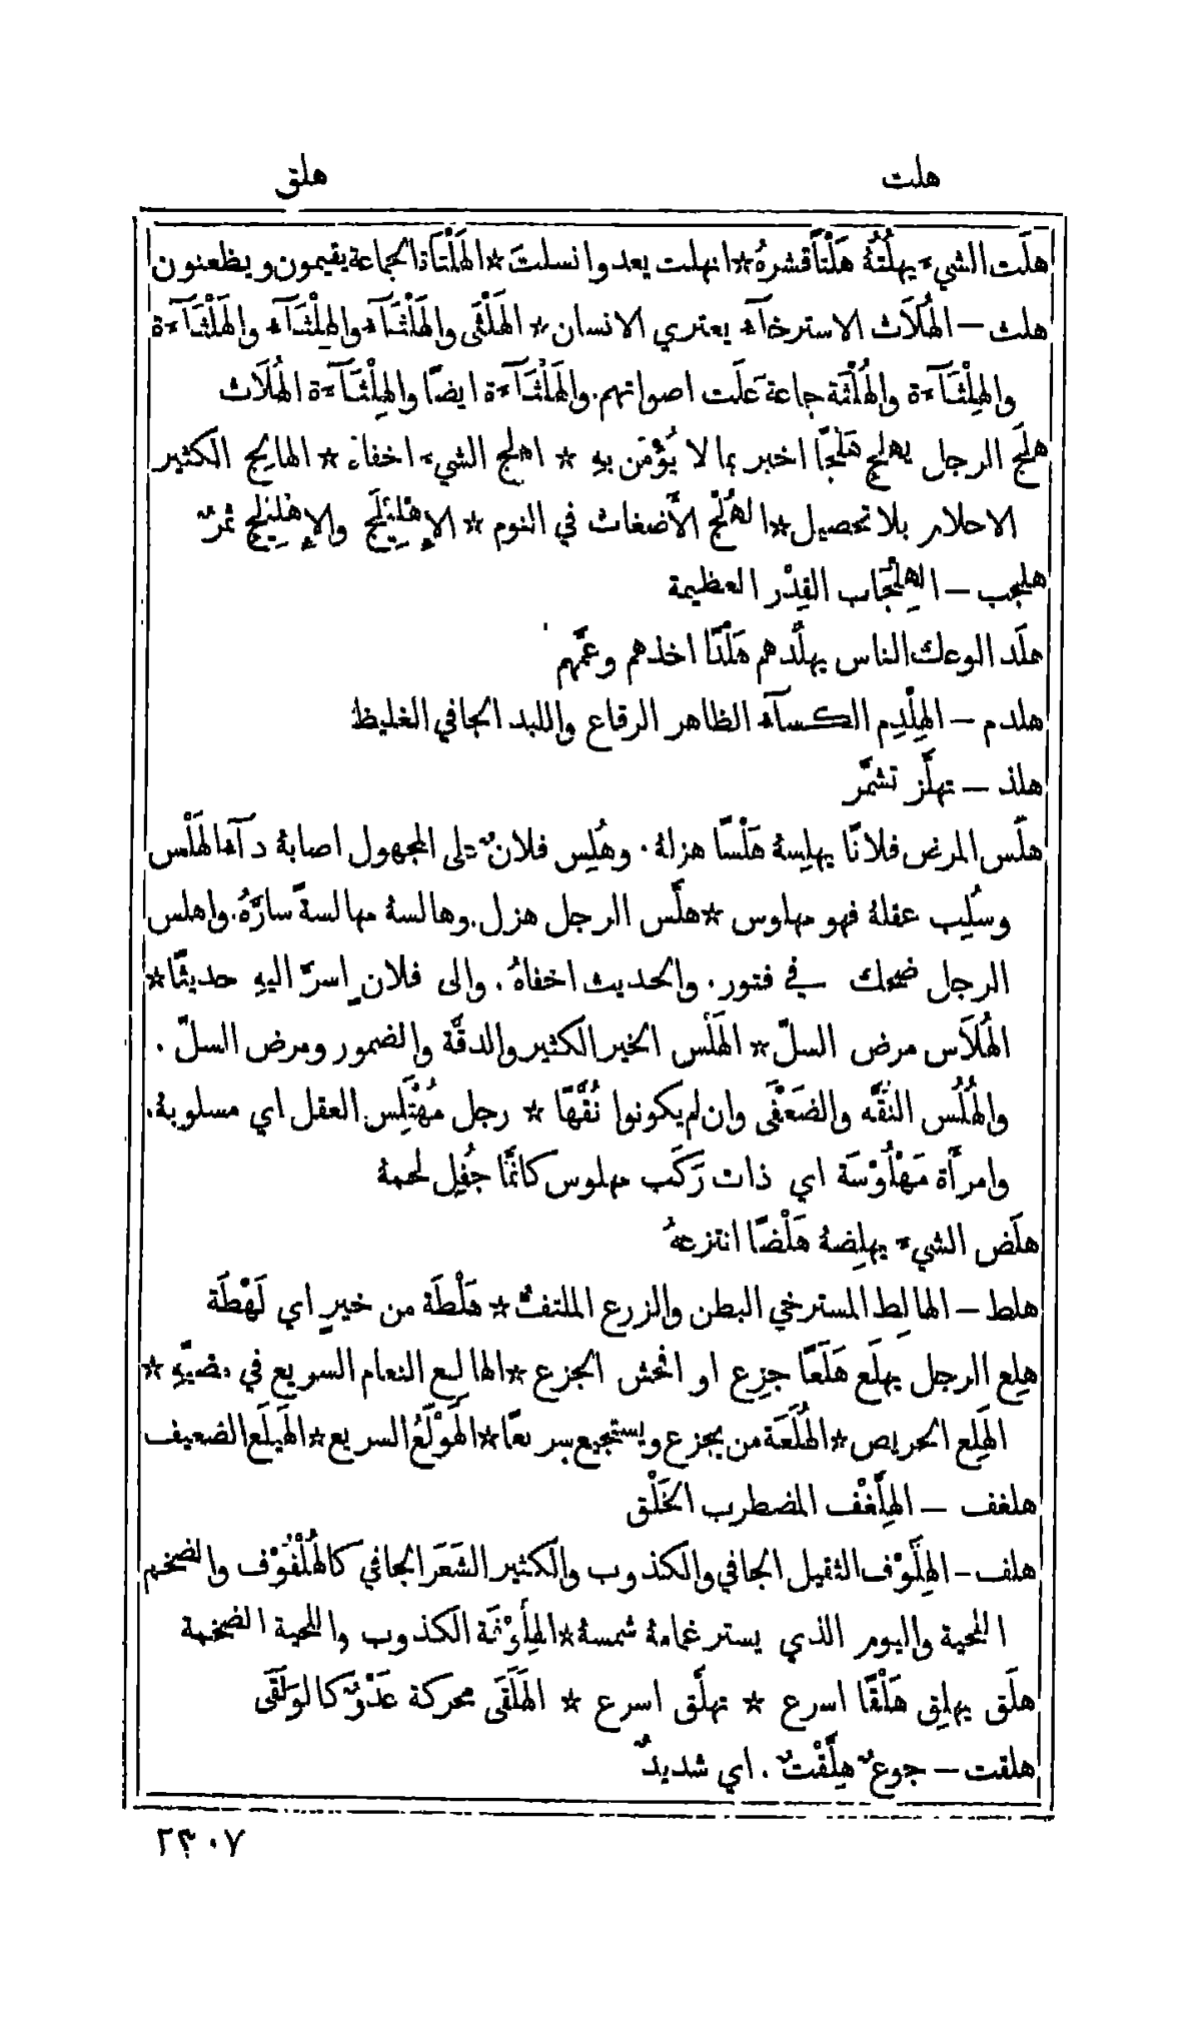 هلت
هلق
هلَت الشيءَ يهلُتُهُ هَلْتًا قشرهُ * انهلت يعدو انسلتَ * الهَلْتَاة الجماعة يقيمون ويظعنون
هلث – الهُلَاث الاسترخآء يعتري الانسان * الهَلْثَى والهَلْثَآء والهِلْثَآء والهَلْثَآءَة
والهِلْثَآءَة والهُلْثَة جماعة عَلَت اصواتهم. والهَلْثَآءَة ايضًا والهِلْثَآءَة الهُلَاث
هلَج الرجل يهلِج هَلْجًا اخبر بما لا يُؤْمَن بهِ * اهلج الشيءَ اخفاهُ * الهالج الكثير
الاحلام بلا تحصيل * الهُلْج الأَضغاث في النوم * الإِهْلِيلَج والإِهْلِيلِج ثمرٌ
هلجب – الهِلْجَاب القِدْر العظيمة
هلَد الوعك الناس يهلُدهم هَلْدًا اخذهم وعمَّهم
هلدم – الهِلْدِم الكسآء الظاهر الرقاع واللبد الجافي الغليظ
هلذ – تهلَّز تشمَّر
هلَس المرض فلانًا يهلِسهُ هَلْسًا هزلهُ. وهُلِس فلانٌ على المجهول اصابهُ دآء الهَلْس
وسُلِب عقلهُ فهو مهلوس * هلَّس الرجل هزل. وهالسهُ مهالسةً سارَّهُ. واهلس
الرجل ضحك في فتور. والحديث اخفاهُ. والى فلانٍ اسرَّ اليهِ حديثًا *
الهُلَاس مرض السلّ * الهَلْس الخير الكثير والدقَّة والضمور ومرض السلّ.
والهُلُس النُقَّه والضَعْفَى وان لم يكونوا نُقَّهًا * رجل مُهْتَلِس العقل اي مسلوبهُ.
وامرأَة مَهْلُوْسَة اي ذات رَكَب مهلوس كانَّما جُفِل لحمهُ
هلَض الشيءَ يهلِضهُ هَلْضًا انتزعهُ
هلط – الهالِط المسترخي البطن والزرع الملتفّ * هَلْطَة من خيرٍ اي لَهْطَة
هلِع الرجل يهلَع هَلَعًا جزِع او افحش الجزع * الهالِع النعام السريع في مضيّهِ *
الهَلِع الحريص * الهُلَعَة من يجزع ويستجيع سريعًا * الهَوْلَعُ السريع * الهَيلَع الضعيف
هلغف – الهِلَّغْف المضطرب الخَلْق
هلف – الهِلَّوْف الثقيل الجافي والكذوب والكثير الشَعَر الجافي كالهُلْفُوْف والضخم
اللحية واليوم الذي يستر غمامهُ شمسهُ * الهِلَّوْفَة الكذوب واللحية الضخمة
هلَق يهلِق هَلْقًا اسرع * تهلَّق اسرع * الهَلَقَى محركة عَدْوٌ كالوَلَقَى
هلقت – جوعٌ هِلَّقْتٌ. اي شديدٌ
٢٣٠٧